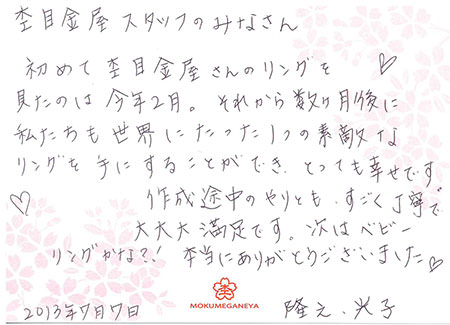 杢目金屋 スタッフのみなさん
初めて 杢目金屋 さんのリングを
見たのは 今年2月。それから数ヶ月後に
私たちも 世界に たった1つの素敵な
リングを手にすることができ、とっても幸せです
作成途中のやりとも すごく丁寧で
大大大満足です。次は ベビー
リングかな?! 本当にありがとうございました
MOKUMEGANEYA
2013年7月7日
隆之、光子